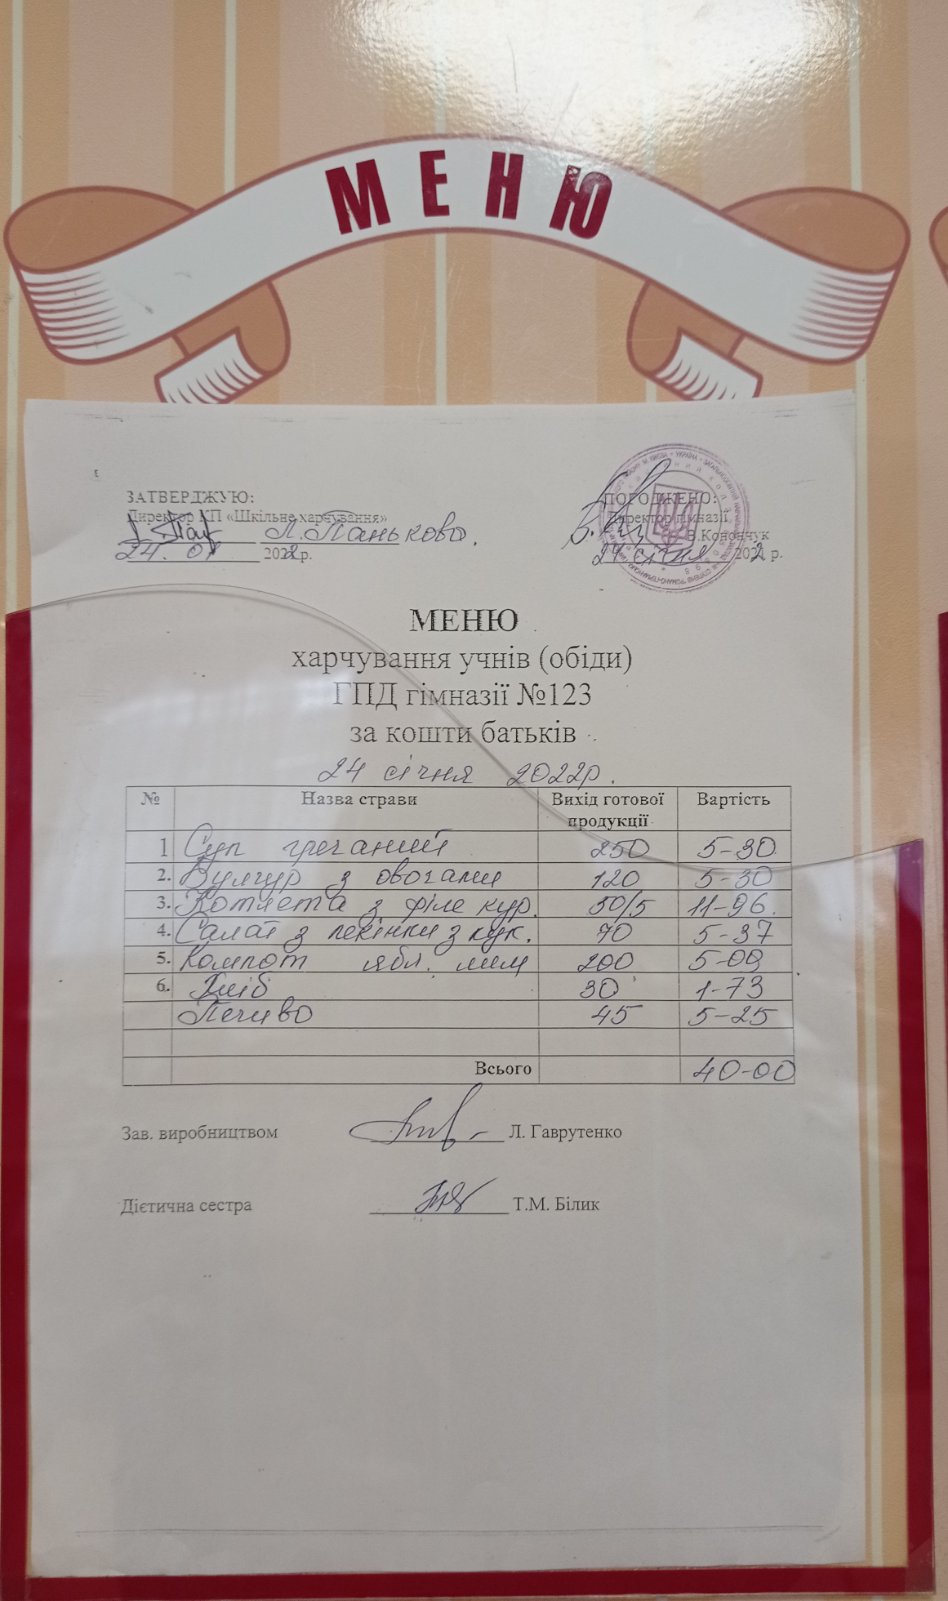 МЕНЮ
ЗАТВЕРДЖУЮ:
Директор КП «Шкільне харчування»
Л. Панькова.
24.01 2022р.
ПОГОДЖЕНО:
Директор гімназії
В.Конончук
24 січня 2022 р.
МЕНЮ
харчування учнів (обіди)
ГПД гімназії №123
за кошти батьків
24 січня 2022р.
№ Назва страви Вихід готової продукції Вартість
1 Суп гречаний 250 5-30
2. Булгур з овочами 120 5-30
3. Котлета з філе кур. 50/5 11-96.
4. Салат з пекінки з кук. 70 5-37
5. Компот ябл. лим 200 5-09
6. Хліб 30 1-73
Печиво 45 5-25
Всього 40-00
Зав. виробництвом Л. Гаврутенко
Дієтична сестра Т.М. Білик